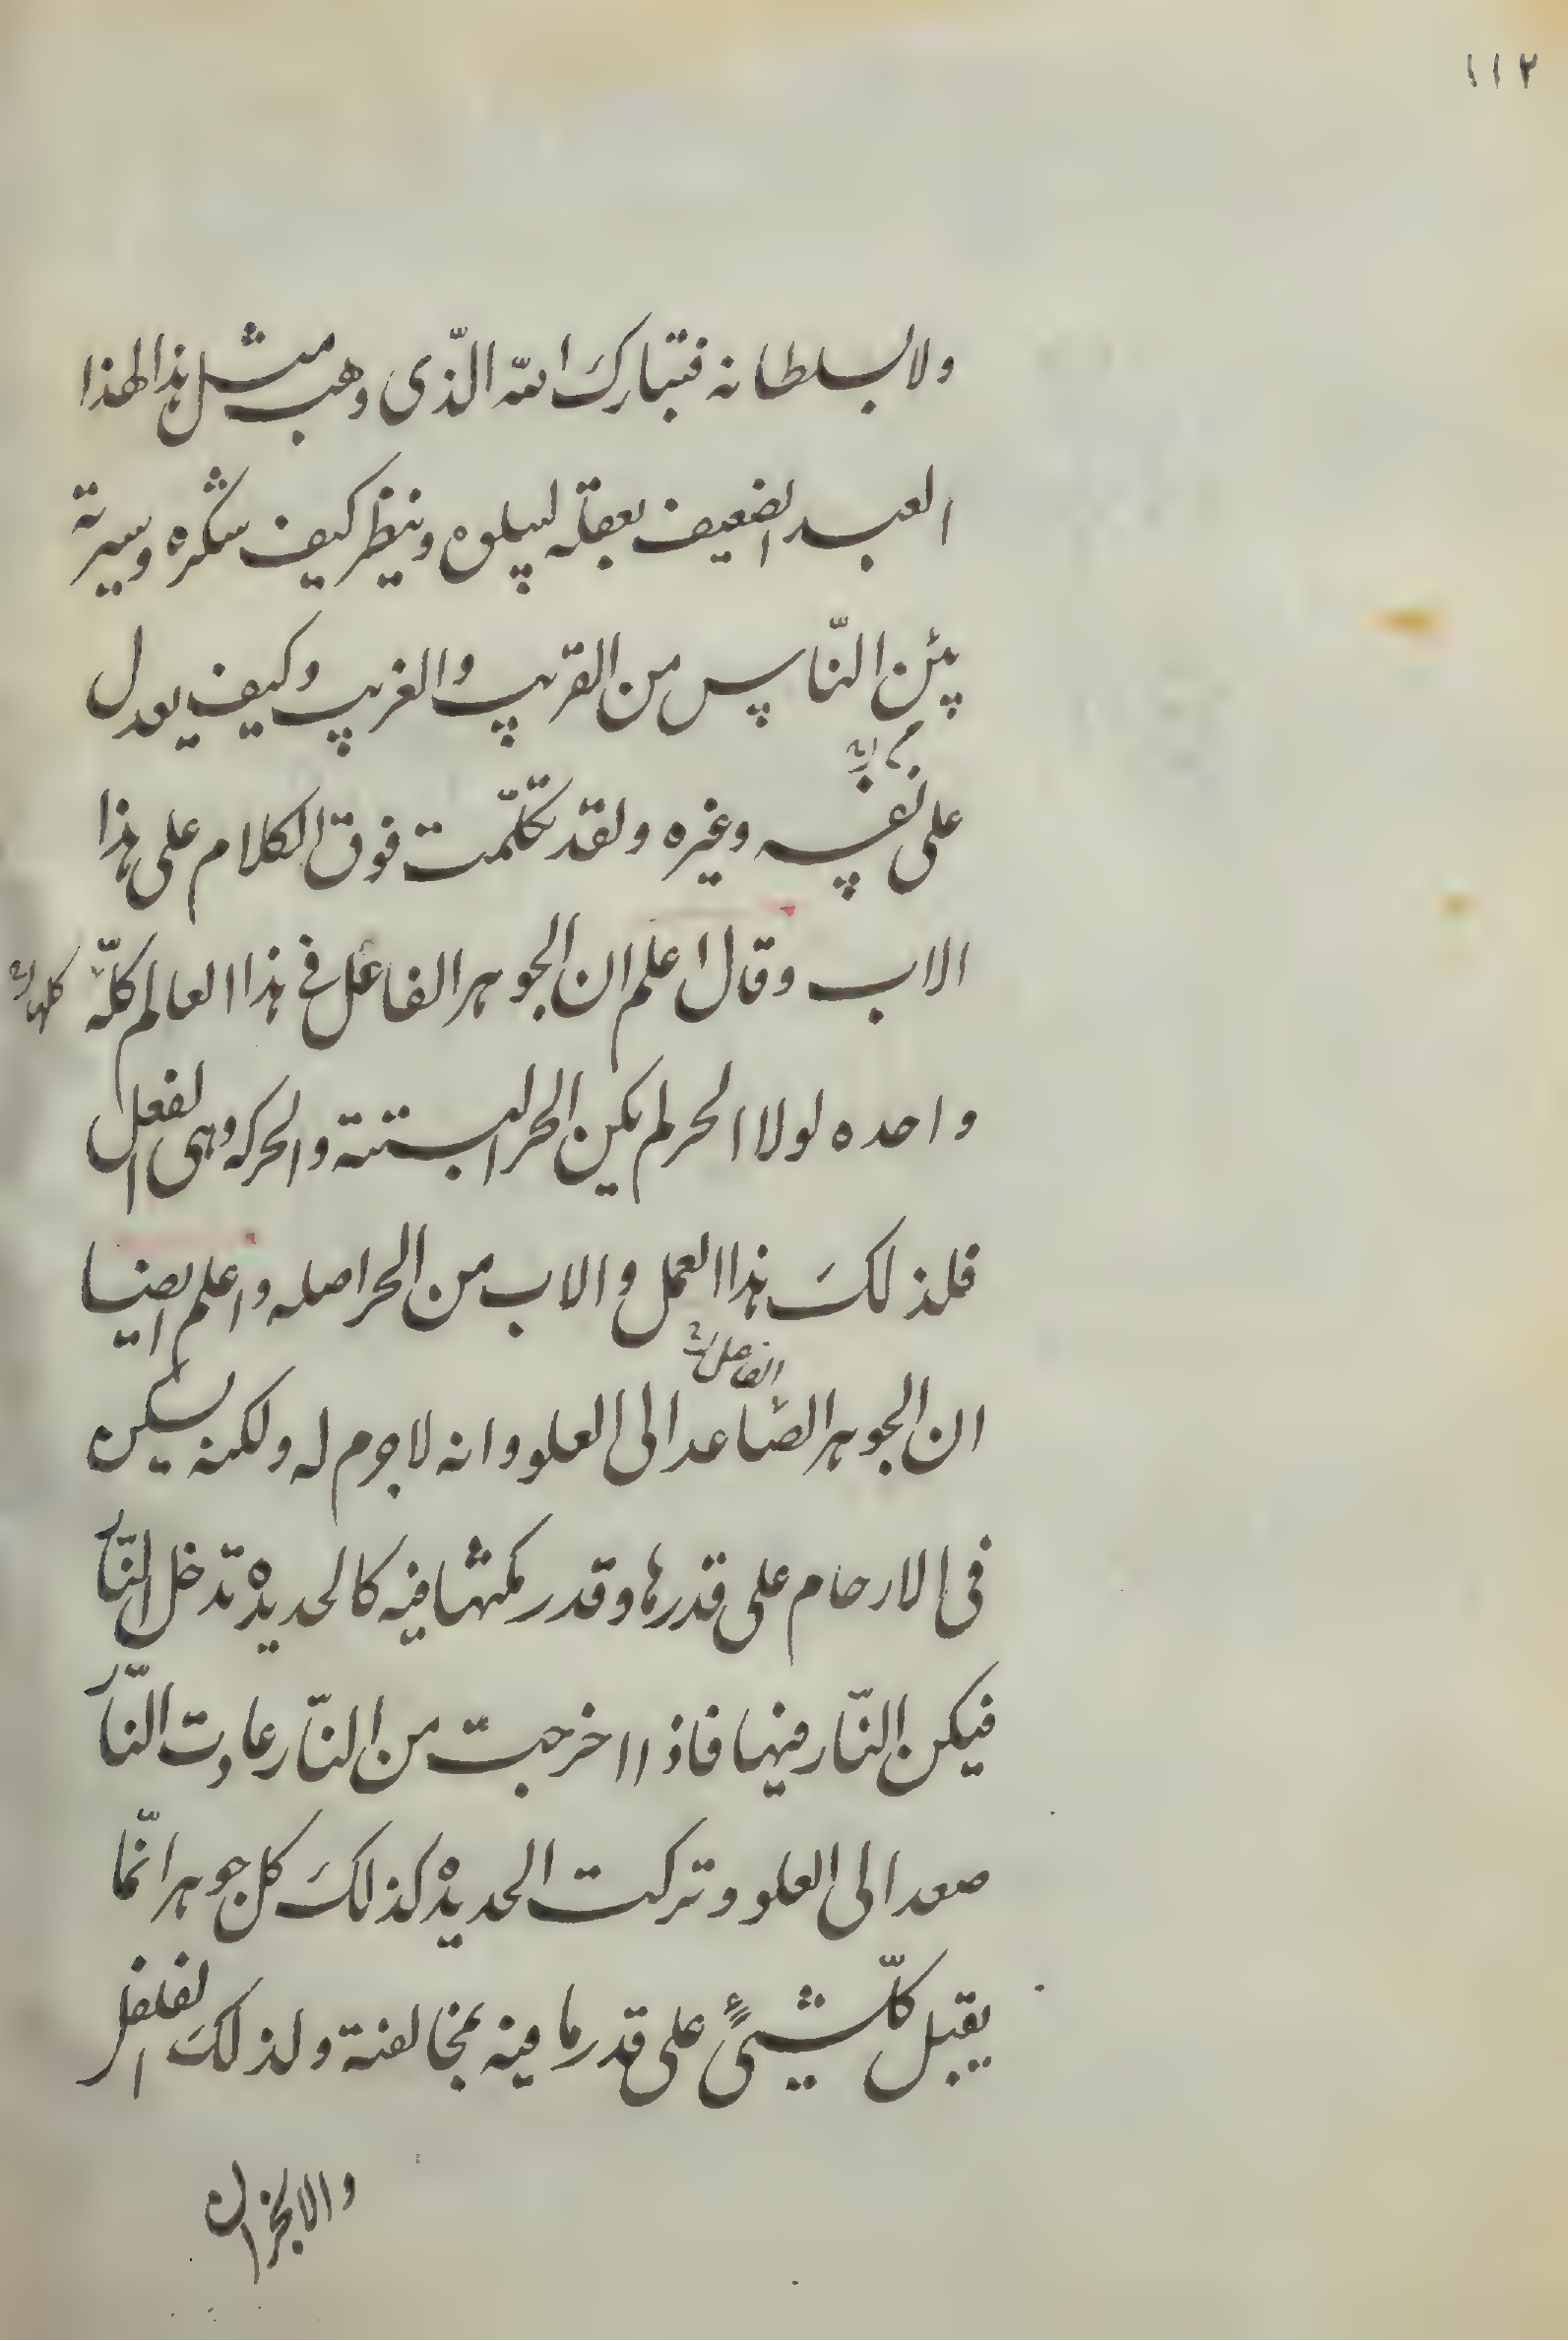 ١١٢
ولا بسلطانه فتبارك الله الّذى وهب مثل هذا لهذا
العبد الضعيف بعقله ليبلوه وينظر كيف شكره وسيرته
بين النّاس من القريب والغريب وكيف يعدل
على نفسه وغيره ولقد تكلّمت فوق الكلام على هذا
الاب وقال اعلم ان الجوهر الفاعل فى هذا العالم كلّه
كلها
واحده لولا الحر لم يكن الحر البتة والحركه وهى الفعل
فلذلك هذا العمل والاب من الحر اصله واعلم ايضا
الفاعل
ان الجوهر الصّاعد الى العلو وانه لا جرم له ولكنه يسكن
فى الارحام على قدرها وقدر مكثها فيه كالحديدة تدخل النّار
فيكن النّار فيها فاذا اخرجت من النّار عاوت النّار
صعد الى العلو وتركت الحديدة كذلك كل جوهر انّما
يقبل كلّ شيئ على قدر ما فيه بمخالفته ولذلك الفلفل
والانجزان